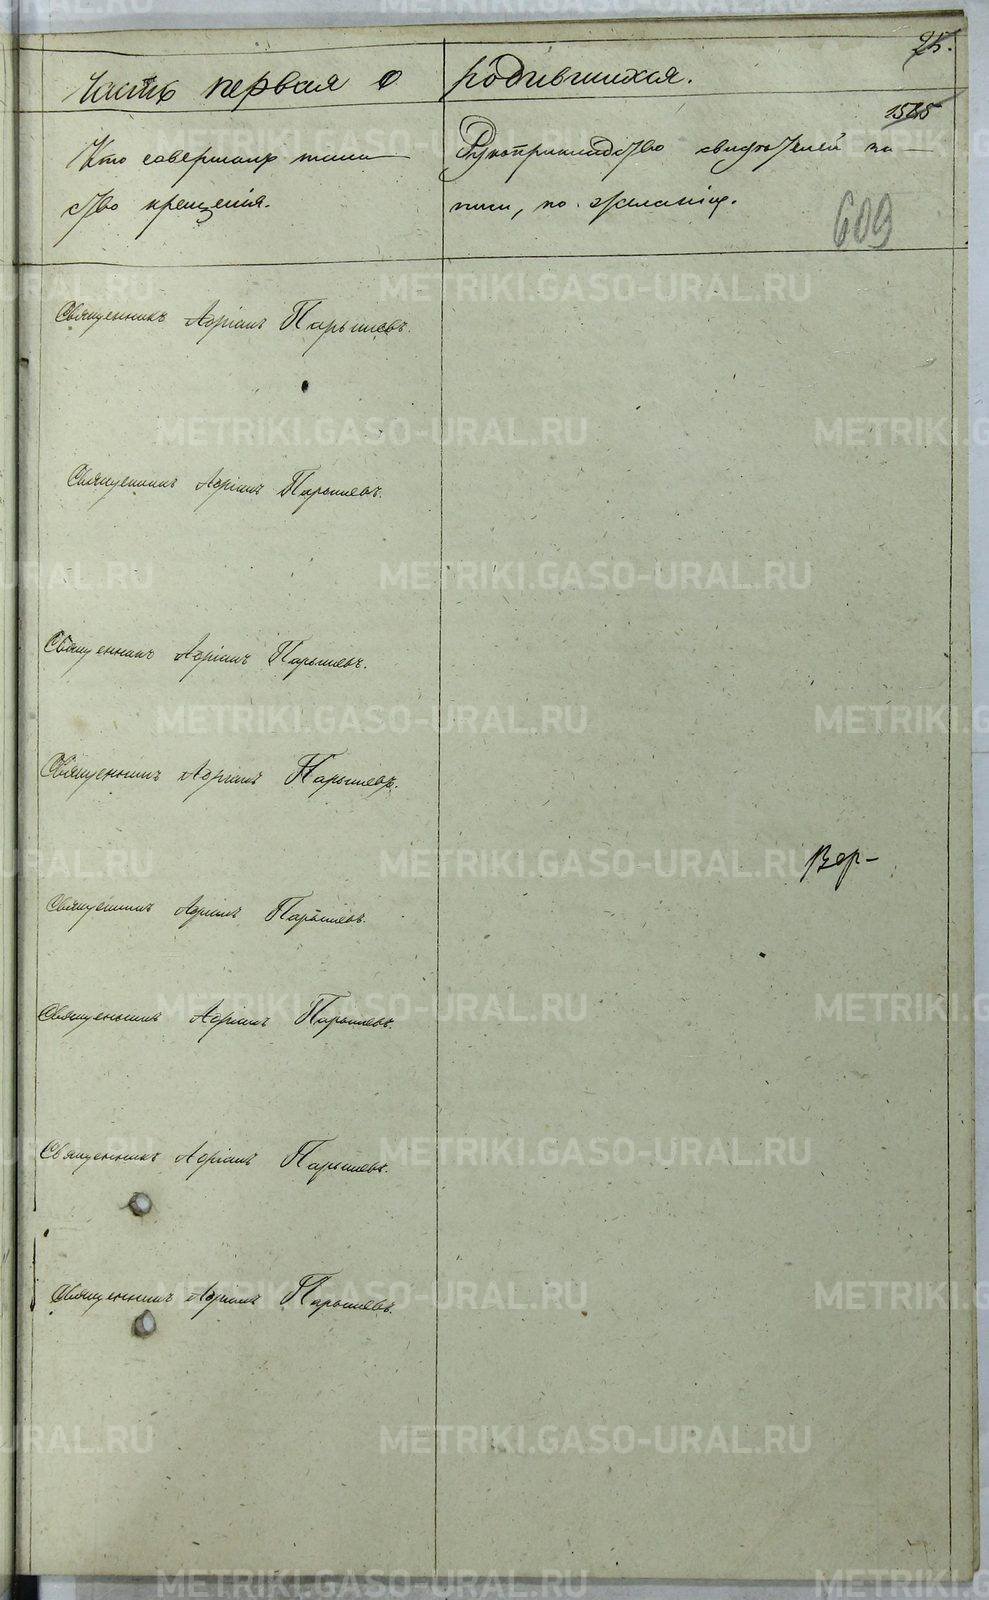 25.
Часть первая о родившихся.
1585
Кто совершалъ таин
ство крещенія.
Рукоприкладство свидѣтелей за-
писи, по желанію.
609
Священникъ Адріанъ Парышевъ.
Священникъ Адріанъ Парышевъ.
Священникъ Адріанъ Парышевъ.
Священникъ Адріанъ Парышевъ.
Вер-
Священникъ Адріанъ Парышевъ.
Священникъ Адріанъ Парышевъ.
Священникъ Адріанъ Парышевъ.
Священникъ Адріанъ Парышевъ.
METRIKI.GASO-URAL.RU